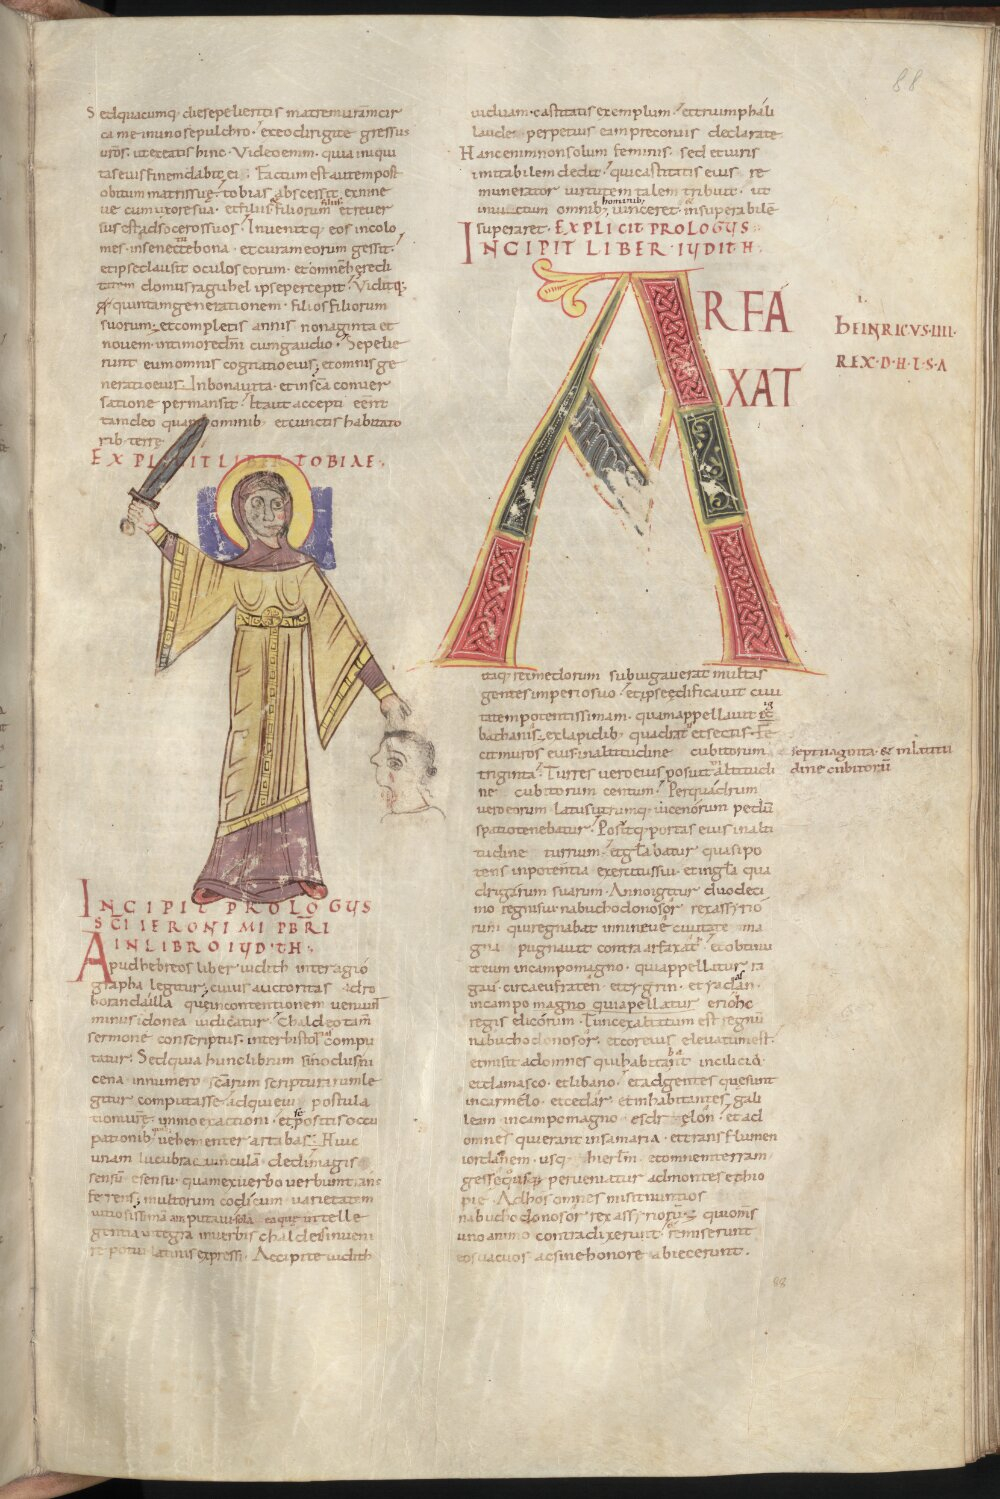 88
Sedquacumq; diesepelieritis matremuram cir
ca me inuno sepulchro. exeo dirigite gressus
uros. utexeatis hinc. Video enim. quia iniqui
tas eius finem dabit ei. Factum est autem post
obitum matris sue. tobias abscessit ex nine
ue cum uxore sua. et filiis filiorum et reuer
sus est ad soceros suos. Inuenitq; eos incolo
mes. in senectute bona. et curam eorum gessit.
et ipse clausit oculos eorum. et omnem heredi
tatem domus raguhel ipse percepit. Viditq;
quintam generationem. filios filiorum
suorum. et completis annis nonaginta et
nouem. in timore dni cum gaudio. Sepelie
runt eum omnis cognatio eius. et omnis ge
neratio eius. In bona uita. et in sca conuer
satione permansit. Ita ut accepti eent
tam deo quam ominib. et cunctis habitato
rib terre
EXPLICIT LIBER TOBIAE.
INCIPIT PROLOGUS
SCI IERONIMI PBRI
IN LIBRO IUDITH.
Apud hebreos liber iudith inter agio
grapha legitur, cuius auctoritas adro
boranda illa que in contentionem ueniunt
minus idonea iudicatur. Chaldeo tam
sermone conscriptus. inter historias compu
tatur. Sed quia hunc librum sinodus ni
cena in numero scarum scripturarum le
gitur computasse. adquieui postula
tioni ure. immo exactioni. et sepositis occu
pationib; uehementer artabar. Huic
unam lucubratiunculam dedi. magis
sensu e sensu. quam ex uerbo uerbum trans
ferens. multorum codicum uarietatem
uitiosissimam amputaui. sola ea que intelle
gentia integra in uerbis chaldeis inueni
re potui. latinis expressi. Accipite iudith
uiduam. castitatis exemplum. et triumphali
laude. perpetuis eam preconiis declarate.
Hanc enim non solum feminis. sed et uiris
imitabilem dedit. qui castitatis eius re
munerator uirtutem talem tribuit. ut
inuictum omnib; hominib; uinceret. insuperabile
superaret. EXPLICIT PROLOGUS.
INCIPIT LIBER IUDITH.
ARFA
XAT
i.
hEINRICVS IIII.
REX D H I S A
itaq; rex medorum subiugauerat multas
gentes imperio suo. et ipse edificauit ciui
tatem potentissimam. quam appellauit
bathanis. ex lapidib; quadratis et sectis. Fe
cit muros eius. in altitudine cubitorum
septuaginta. & in latitu
dine cubitoru
triginta. Turres uero eius posuit in altitudi
ne cubitorum centum. Per quadrum
uero eorum latus utrumq; uicenorum pedu
spatio tenebatur. Positq; portas eius in alti
tudine turrium. et gla batur quasi po
tens in potentia exercitus sui. et in gla qua
drigarum suarum. Anno igitur duodeci
mo regni sui. nabuchodonosor rex assyrio
rum qui regnabat in nineue ciuitate ma
gna pugnauit contra arfaxat. et obtinu
it eum in campo magno. qui appellatur ra
gau. circa eufraten. et tygrin. et iadas.
in campo magno qui apellatur erioch
regis elicorum. Tunc exaltatum est regnu
nabuchodonosor. et cor eius eleuatum est.
et misit ad omnes qui habitabant in cilicia.
et damasco. et libano. et ad gentes que sunt
in carmelo. et cedar. et inhabitantes gali
leam in campo magno esdrelon. et ad
omnes qui erant in samaria. et trans flumen
iordanem. usq; hierlm. et omnem terram
gesse quousq; perueniatur ad montes ethio
pie. Ad hos omnes misit nuntios
nabuchodonosor rex assyriorum. qui omis
uno animo contradixerunt. et remiserunt
eos uacuos ac sine honore abiecerunt.
88